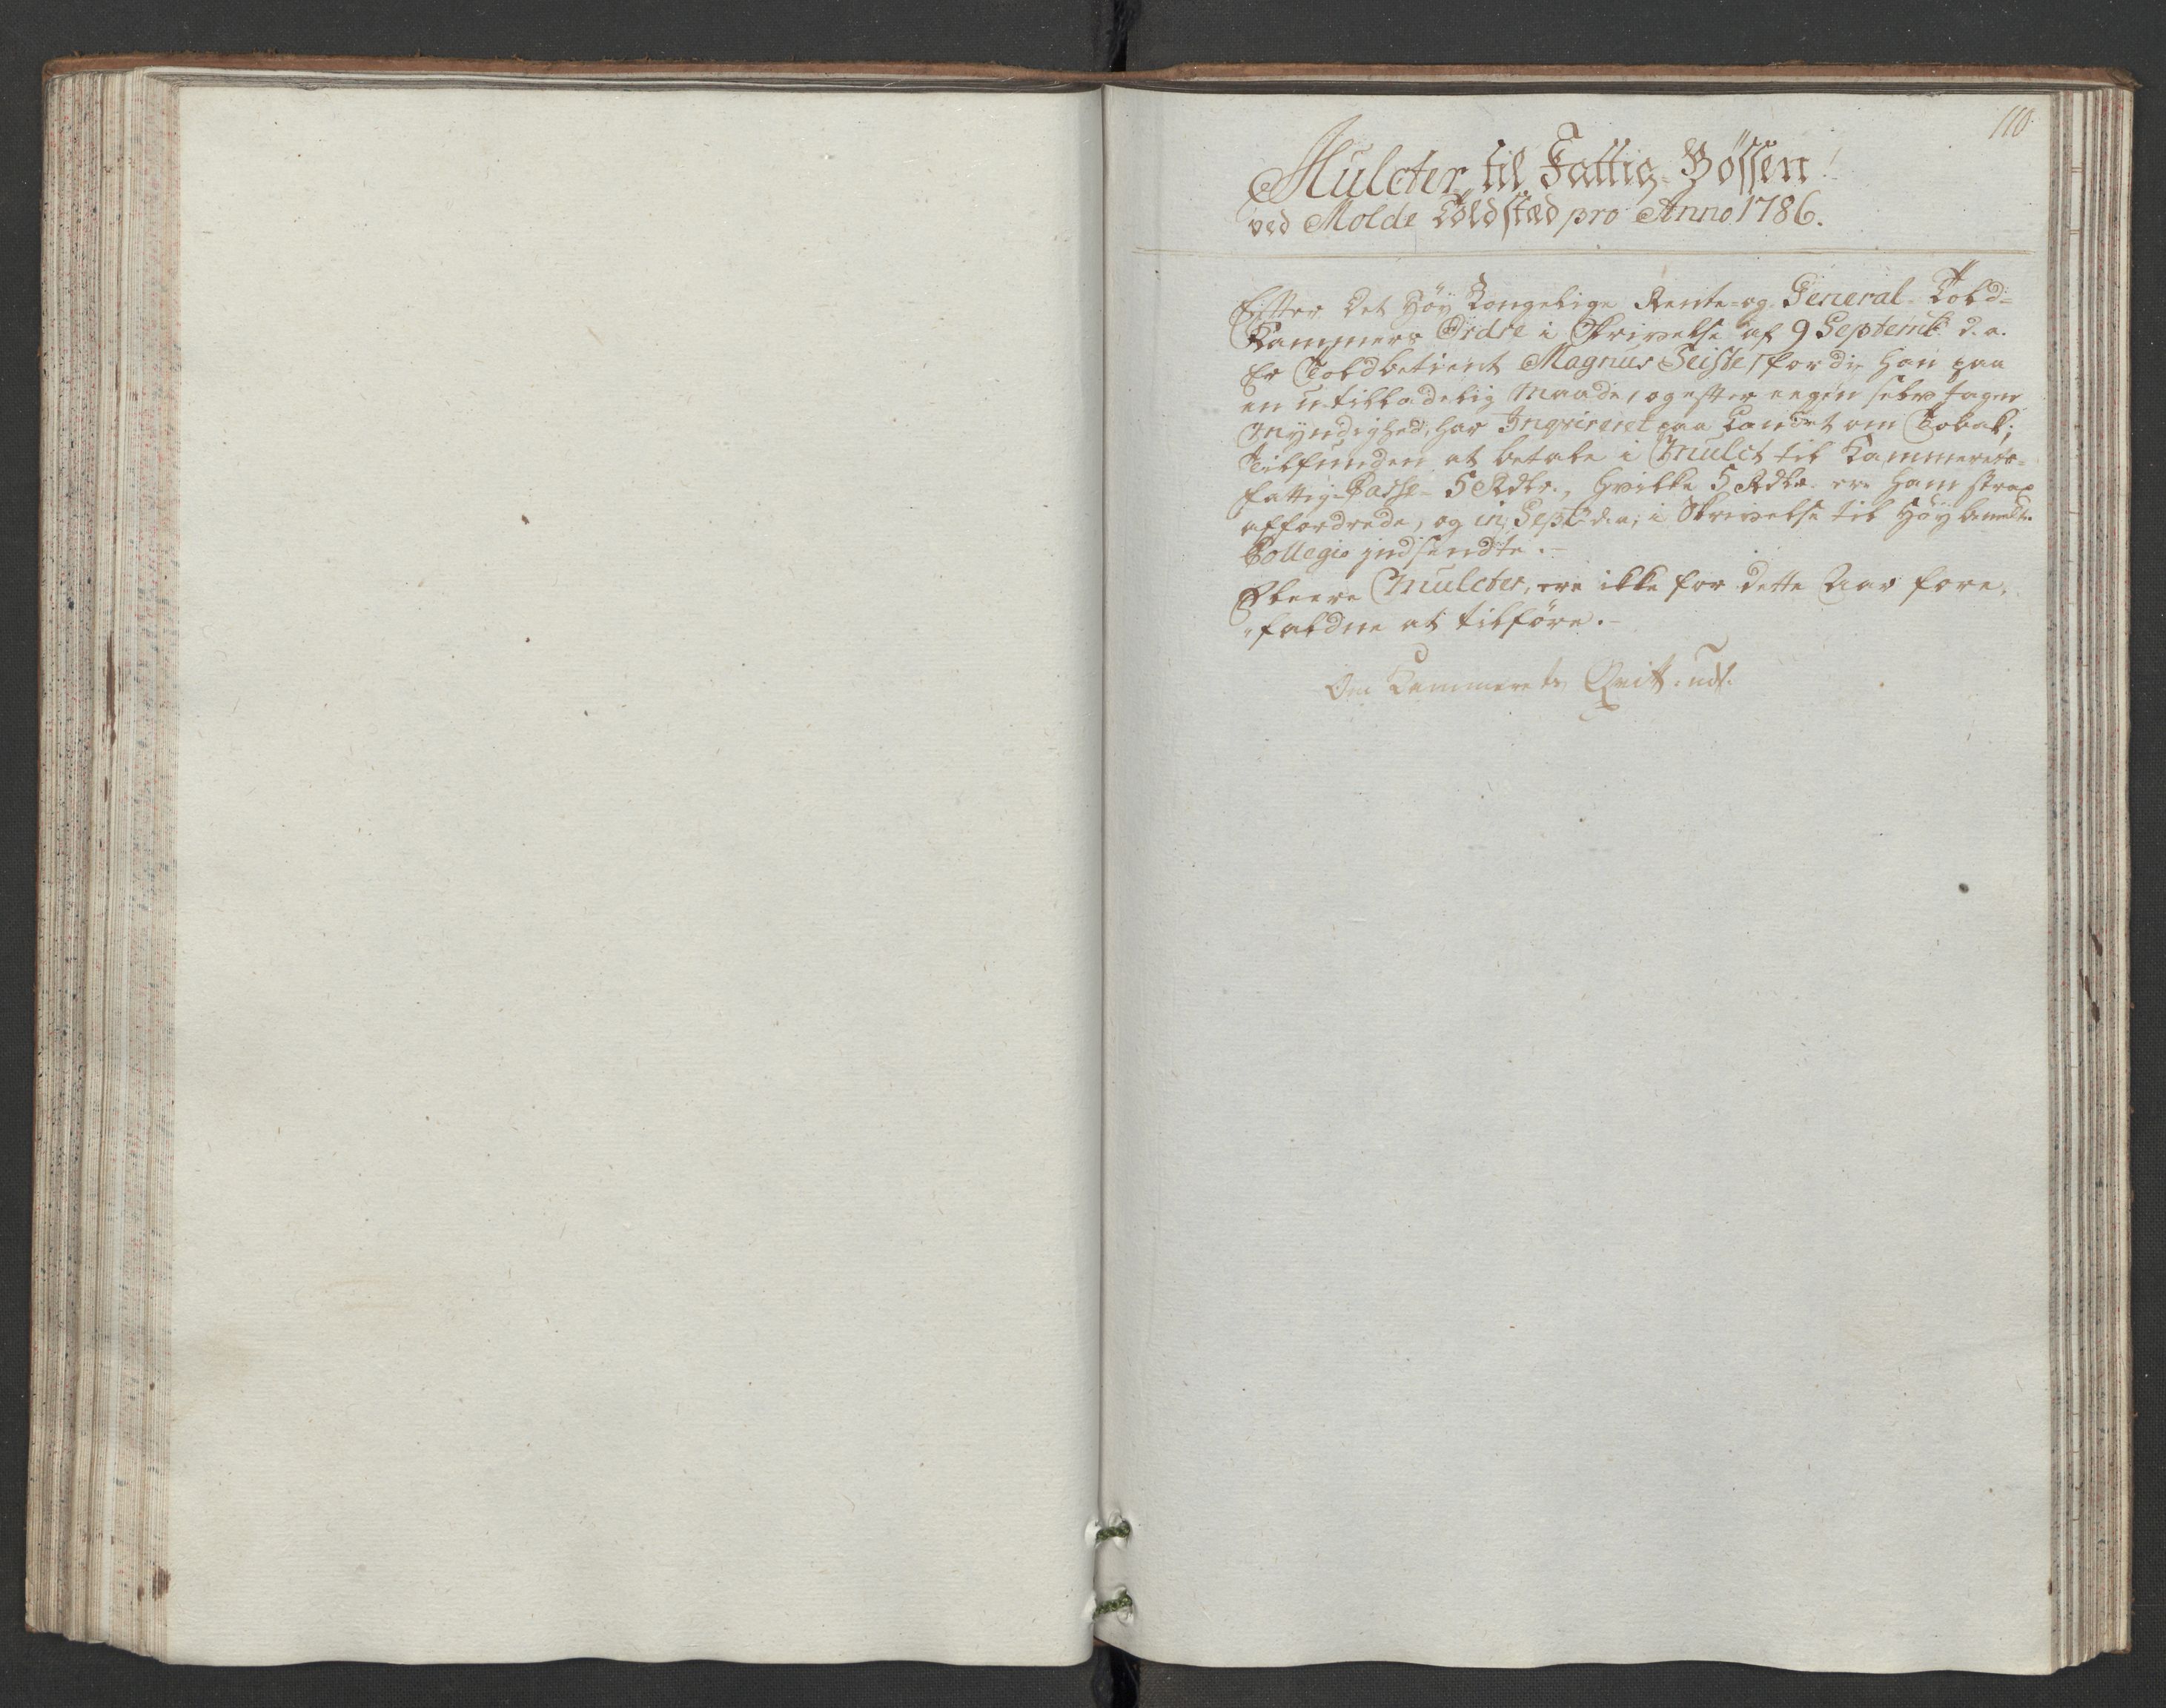 110.
Mulcter til Fattig-Bøssen
ved Molde Toldstæd pro Anno 1786.
Efter Det Høy Kongelige Rente- og General-Told-
Kammers Ordre i Skrivelse af 9 Septemb. d. a.
Er Toldbetient Magnus Seiste, fordi han paa
en utilladelig Maade, og efter eegen selvtagen
Myndighed, har Inqvireret paa Landet om Tobak;
Tilfunden at betale i Mulct til Kammerets-
Fattig-Casse- 5 Rdlr., hvilke 5 Rdlr. ere ham strax
affordrede, og in Septb. d. a; i Skrivelse til Høybemelte
Collegio indsendte.-
Fleere Mulcter, ere ikke for dette Aar fore,
"faldne at tilføre.-
Om Kammerets Qvitt. uds.